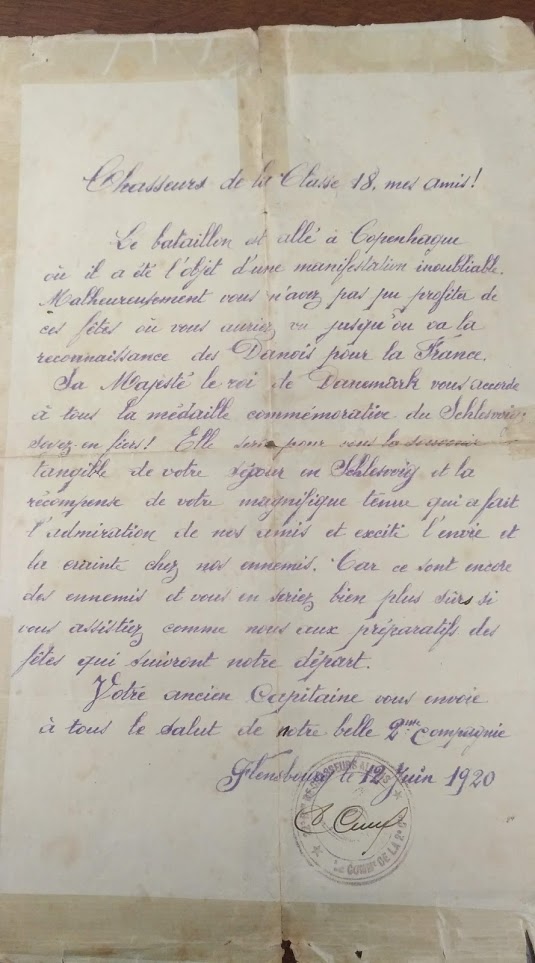 Chasseurs de la Classe 18, mes amis!
Le bataillon est allé à Copenhague
où il a été l'objet d'une manifestation inoubliable.
Malheureusement vous n'avez pas pu profiter de
ces fêtes où vous auriez vu jusqu'où va la
reconnaissance des Danois pour la France.
Sa Majesté le roi de Danemark vous accorde
à tous la médaille commémorative du Schlesvig;
soyez-en fiers! Elle sera pour vous le souvenir
tangible de votre séjour en Schlesvig et la
récompense de votre magnifique tenue qui a fait
l'admiration de nos amis et excité l'envie et
la crainte chez nos ennemis. Car ce sont encore
des ennemis et vous en seriez bien plus sûrs si
vous assistiez comme nous aux préparatifs des
fêtes qui suivront notre départ.
Votre ancien Capitaine vous envoie
à tous le salut de notre belle 2me Compagnie
Flensbourg le 12 Juin 1920
DE CHASSEURS ALPINS
DE LA 2e Cie